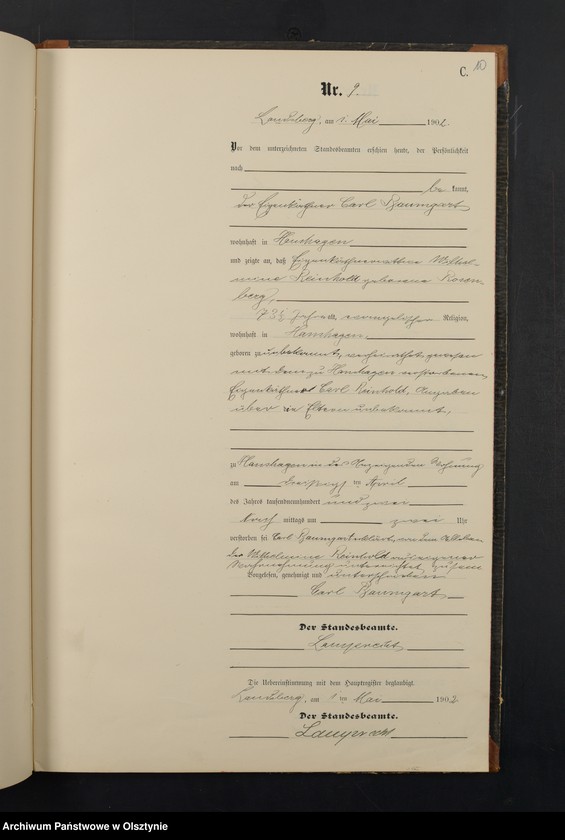 C. 10
Nr. 9.
Landsberg, am 1. Mai 1902.
Vor dem unterzeichneten Standesbeamten erschien heute, der Persönlichkeit
nach
be kannt,
der Eigenkäthner Carl Baumgart
wohnhaft in Hanshagen
und zeigte an, daß Eigenkäthnerwittwe Wilhel-
mine Reinhold geborene Rosen-
berg,
73½ Jahre alt, evangelischer Religion,
wohnhaft in Hanshagen,
geboren zu unbekannt, verheirathet gewesen
mit dem zu Hanshagen verstorbenen
Eigenkäthner Carl Reinhold, Angaben
über die Eltern unbekannt,
zu Hanshagen in des Anzeigenden Wohnung
am dreißigsten April
des Jahres tausendneunhundert und zwei
Nach mittags um zwei Uhr
verstorben sei Carl Baumgart erklärt, von dem Ableben
der Wilhelmine Reinhold aus eigener
Wahrnehmung unterrichtet zu sein
Vorgelesen, genehmigt und unterschrieben
Carl Baumgart
Der Standesbeamte.
Lamprecht
Die Uebereinstimmung mit dem Hauptregister beglaubigt.
Landsberg, am 1 ten Mai 1902
Der Standesbeamte.
Lamprecht
Archiwum Państwowe w Olsztynie